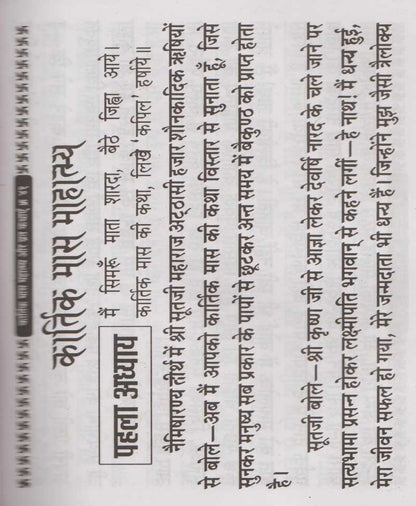 कार्तिक मास माहात्म्य
पहला अध्याय
मैं सिमरूँ माता शारदा, बैठे जिह्वा आये।
कार्तिक मास की कथा, लिखे 'कपिल' हर्षाये॥
नैमिषारण्य तीर्थ में श्री सूतजी महाराज अट्ठासी हजार शौनकादिक ऋषियों
से बोले—अब मैं आपको कार्तिक मास की कथा विस्तार से सुनाता हूँ, जिसे
सुनकर मनुष्य सब प्रकार के पापों से छूटकर अन्त समय में बैकुण्ठ को प्राप्त होता
है।
सूतजी बोले—श्री कृष्ण जी से आज्ञा लेकर देवर्षि नारद के चले जाने पर
सत्यभामा प्रसन्न होकर लक्ष्मीपति भगवान् से कहने लगीं—हे नाथ! मैं धन्य हुई,
मेरा जीवन सफल हो गया, मेरे जन्मदाता भी धन्य हैं। जिन्होंने मुझ जैसी त्रैलोक्य